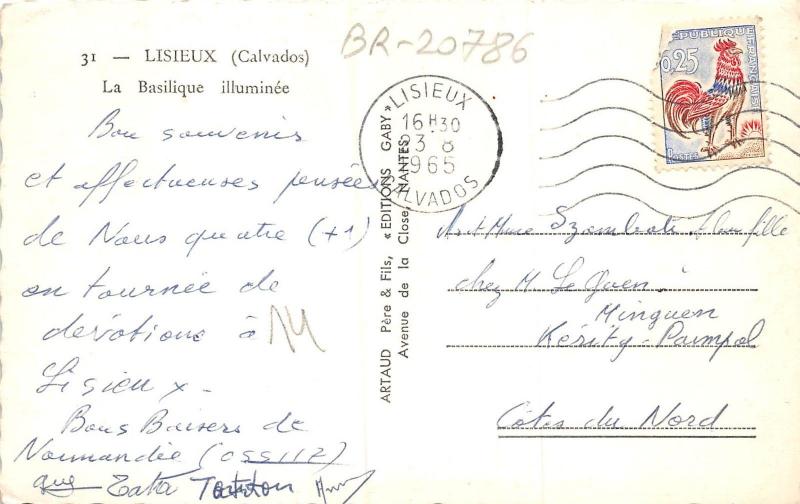 BR-20786
31 — LISIEUX (Calvados)
La Basilique illuminée
Bon souvenir
et affectueuses pensées
de Nous quatre (+1)
en tournée de
dévotions à
Lisieux -
Bons Baisers de
Normandie
14
ARTAUD Père & Fils, « EDITIONS GABY »
Avenue de la Close, NANTES
LISIEUX
16H30
23 8
1965
CALVADOS
REPUBLIQUE FRANÇAISE
0,25
POSTES
M. et Mme Szombati & leur fille
chez M. Le Guen
Minguen
Kérity-Paimpol
Côtes du Nord